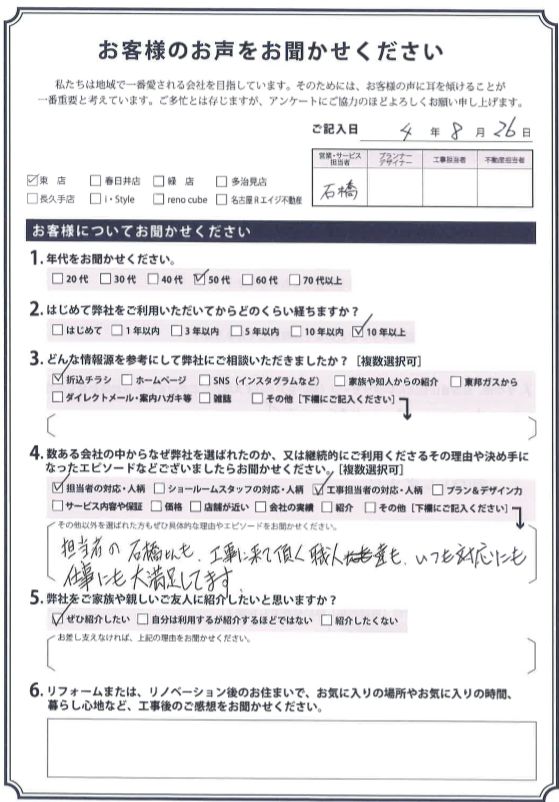 お客様のお声をお聞かせください
私たちは地域で一番愛される会社を目指しています。そのためには、お客様の声に耳を傾けることが
一番重要と考えています。ご多忙とは存じますが、アンケートにご協力のほどよろしくお願い申し上げます。
ご記入日 4 年 8 月 26 日
営業・サービス担当者 プランナーデザイナー 工事担当者 不動産担当者
石橋
☑東 店 □春日井店 □緑 店 □多治見店
□長久手店 □i・Style □reno cube □名古屋Rエイジ不動産
お客様についてお聞かせください
1. 年代をお聞かせください。
□20代 □30代 □40代 ☑50代 □60代 □70代以上
2. はじめて弊社をご利用いただいてからどのくらい経ちますか？
□はじめて □1年以内 □3年以内 □5年以内 □10年以内 ☑10年以上
3. どんな情報源を参考にして弊社にご相談いただきましたか？［複数選択可］
☑折込チラシ □ホームページ □SNS（インスタグラムなど） □家族や知人からの紹介 □東邦ガスから
□ダイレクトメール・案内ハガキ等 □雑誌 □その他［下欄にご記入ください］
4. 数ある会社の中からなぜ弊社を選ばれたのか、又は継続的にご利用くださるその理由や決め手に
なったエピソードなどございましたらお聞かせください。［複数選択可］
☑担当者の対応・人柄 □ショールームスタッフの対応・人柄 ☑工事担当者の対応・人柄 □プラン＆デザイン力
□サービス内容や保証 □価格 □店舗が近い □会社の実績 □紹介 □その他［下欄にご記入ください］
その他以外を選ばれた方もぜひ具体的な理由やエピソードをお聞かせください。
担当者の石橋さんも、工事に来て頂く職人達も、いつも対応にも
仕事にも大満足してます。
5. 弊社をご家族や親しいご友人に紹介したいと思いますか？
☑ぜひ紹介したい □自分は利用するが紹介するほどではない □紹介したくない
お差し支えなければ、上記の理由をお聞かせください。
6. リフォームまたは、リノベーション後のお住まいで、お気に入りの場所やお気に入りの時間、
暮らし心地など、工事後のご感想をお聞かせください。